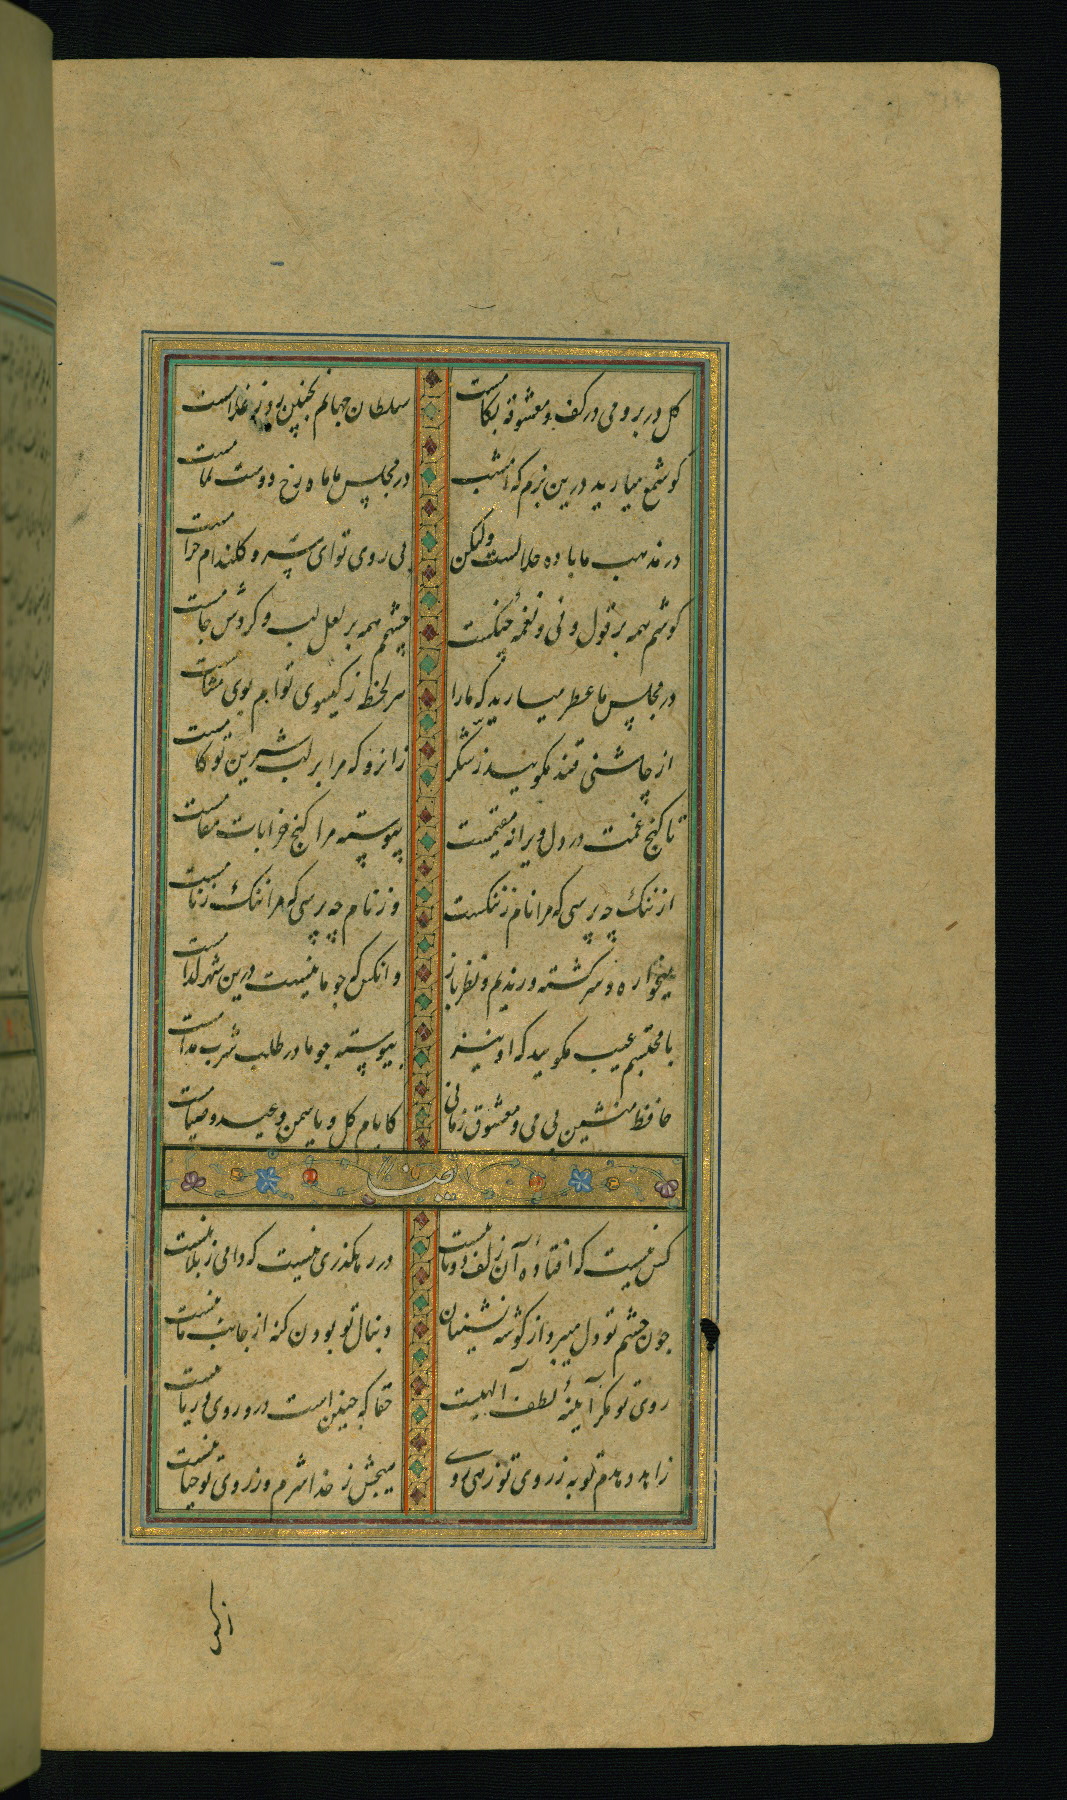 کل در بر و می در کف و معشوقه بکامست سلطان جهانم بچنین روز غلامست
کو شمع میارید درین بزم که امشب در مجلس ما ماه رخ دوست تمامست
در مذهب ما باده حلالست ولیکن بی روی تو ای سرو کلندام حرامست
کوشم همه بر قول نی و نغمه چنکست چشمم همه بر لعل لب و کردش جامست
در مجلس ما عطر میارید که مارا هر لحظه ز کیسوی تو ام بوی مشامست
از چاشنی قند مکویید ز شکر زانرو که مرا بر لب شیرین تو کامست
تا کنج غمت در دل ویرانه مقیمست پیوسته مرا کنج خرابات مقامست
از ننک چه پرسی که مرا نام ز ننکست وز نام چه پرسی که مرا ننک ز نامست
میخواره و سرکشته و رندیم و نظر باز وانکس که جو ما نیست درین شهر کدامست
با محتسبم عیب مکویید که او نیز پیوسته جو ما در طلب شرب مدامست
حافظ منشین بی می و معشوق زمانی کایام کل و یاسمن و عید صیامست
کس نیست که افتاده آن زلف دوتا نیست در رهکذری نیست که دامی ز بلا نیست
جون چشم تو دل میبرد از کوشه نشینان دنبال تو بودن کنه از جانب ما نیست
روی تو مکر آینه لطف الهیست حقا که چنین است و درو روی و ریا نیست
زاهد دهدم توبه ز روی تو زهی روی هیچش ز خدا شرم و ز روی تو حیا نیست